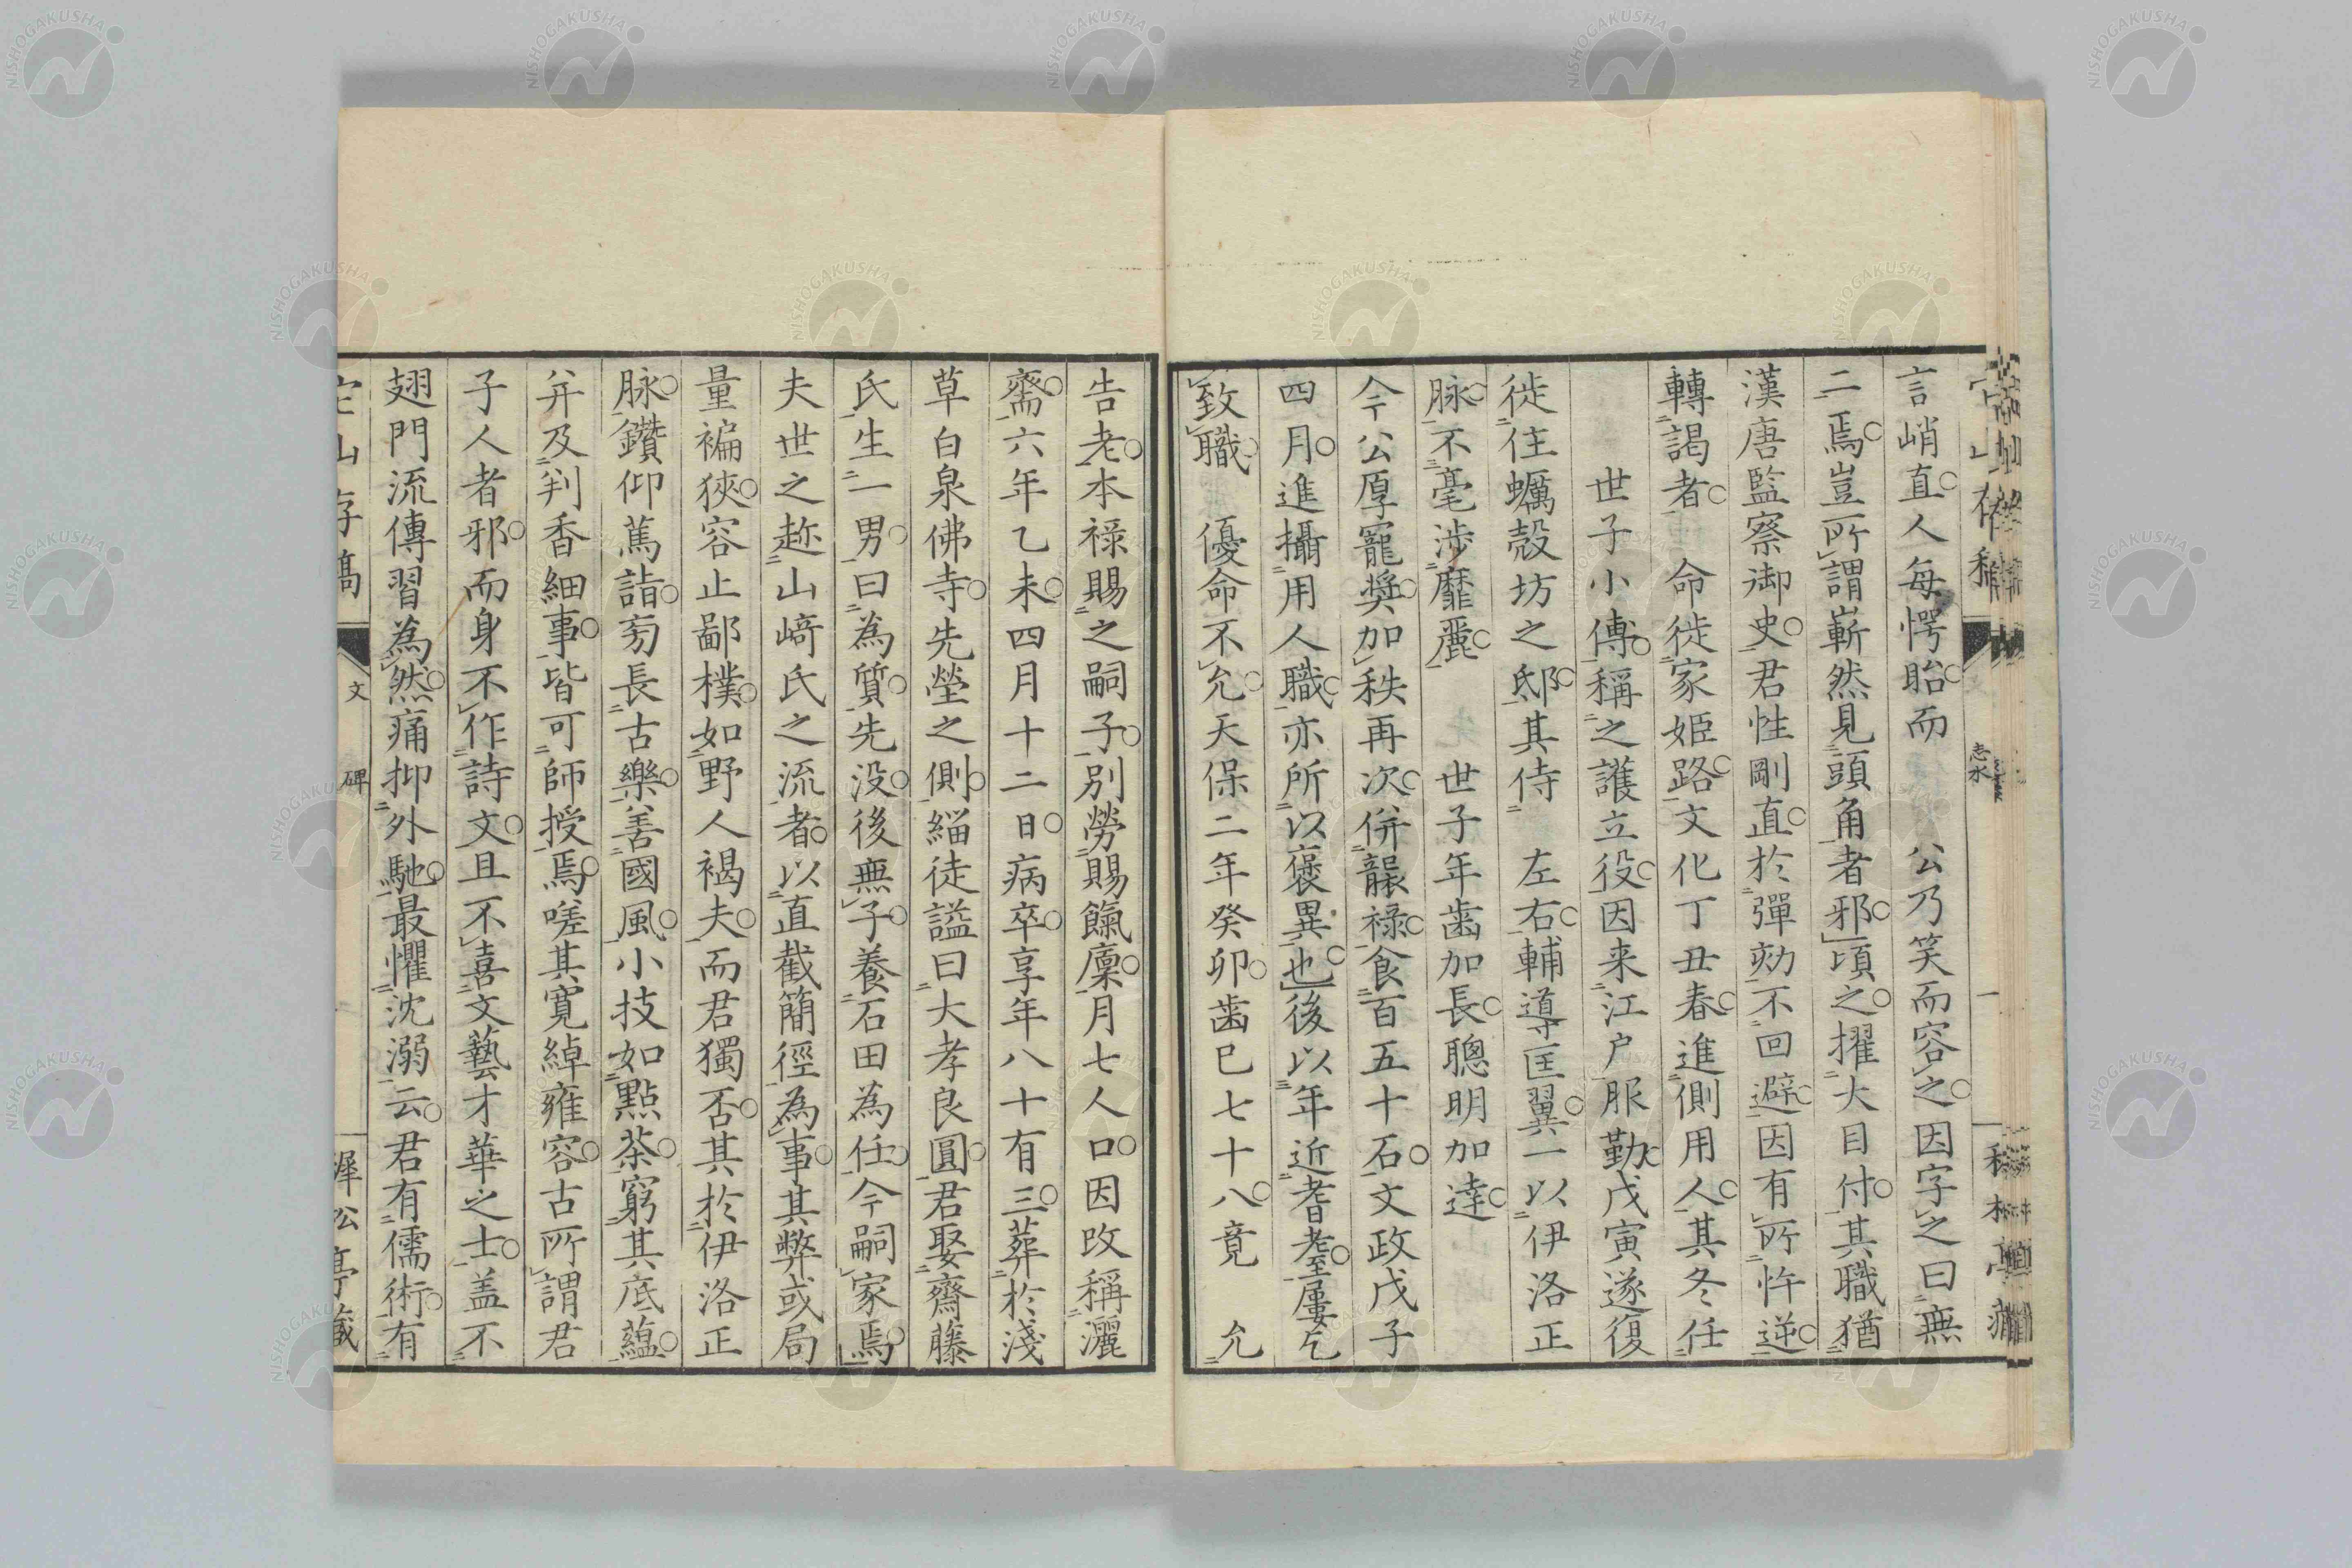 言峭直人每愕眙而 公乃笑而容之因字之曰無
二焉豈所謂嶄然見頭角者邪頃之擢大目付其職猶
漢唐監察御史君性剛直於彈劾不回避因有所忤逆
轉謁者 命徙家姫路文化丁丑春進側用人其冬任
世子小傅稱之護立役因来江戶服勤戊寅遂復
徙住蠣殼坊之邸其侍 左右輔導匡翼一以伊洛正
脉不毫涉靡麗 世子年齒加長聰明加達
今公厚寵奬加秩再次併龞祿食百五十石文政戊子
四月進攝用人職亦所以褒異也後以年近耆耋屢乞
致職 優命不允天保二年癸卯齒巳七十八竟 允
告老本祿賜之嗣子別勞賜餼廩月七人口因改稱灑
齋六年乙未四月十二日病卒享年八十有三葬於淺
草白泉佛寺先塋之側緇徒謚曰大孝良圓君娶齋藤
氏生一男曰為質先沒後無子養石田為任今嗣家焉
夫世之趂山﨑氏之流者以直截簡徑為事其弊或局
量褊狹容止鄙樸如野人褐夫而君獨否其於伊洛正
脉鑽仰篤詣旁長古樂善國風小技如點茶窮其底蘊
幷及判香細事皆可師授焉嗟其寬綽雍容古所謂君
子人者邪而身不作詩文且不喜文藝才華之士蓋不
翅門流傳習為然痛抑外馳最懼沈溺云君有儒術有
文
碑
NISHOGAKUSHA